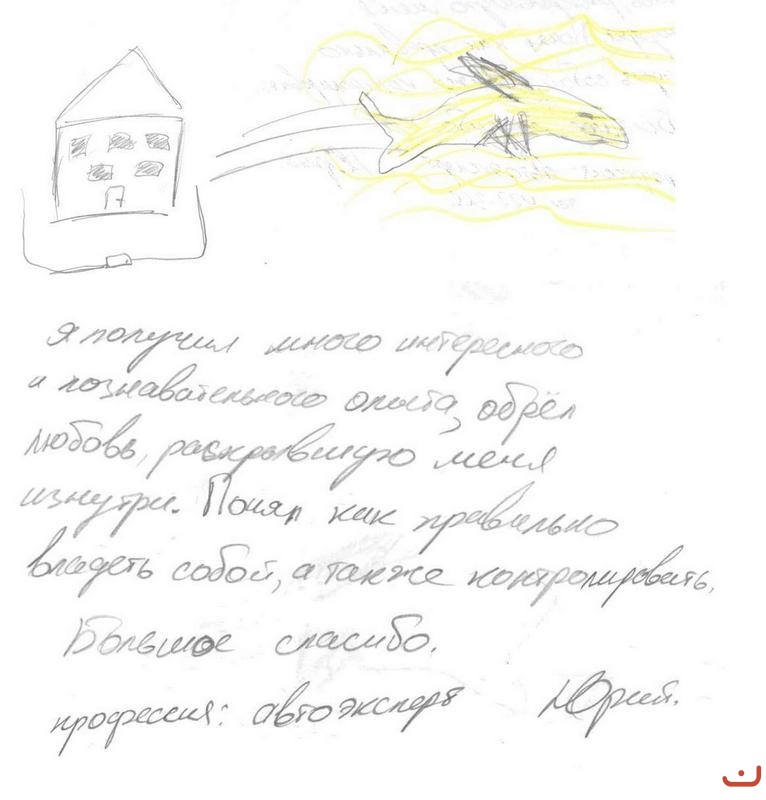 я получил много интересного
и познавательного опыта, обрёл
любовь, раскрывшую меня
изнутри. Понял как правильно
владеть собой, а также контролировать.
Большое спасибо.
профессия: автоэксперт Юрий.